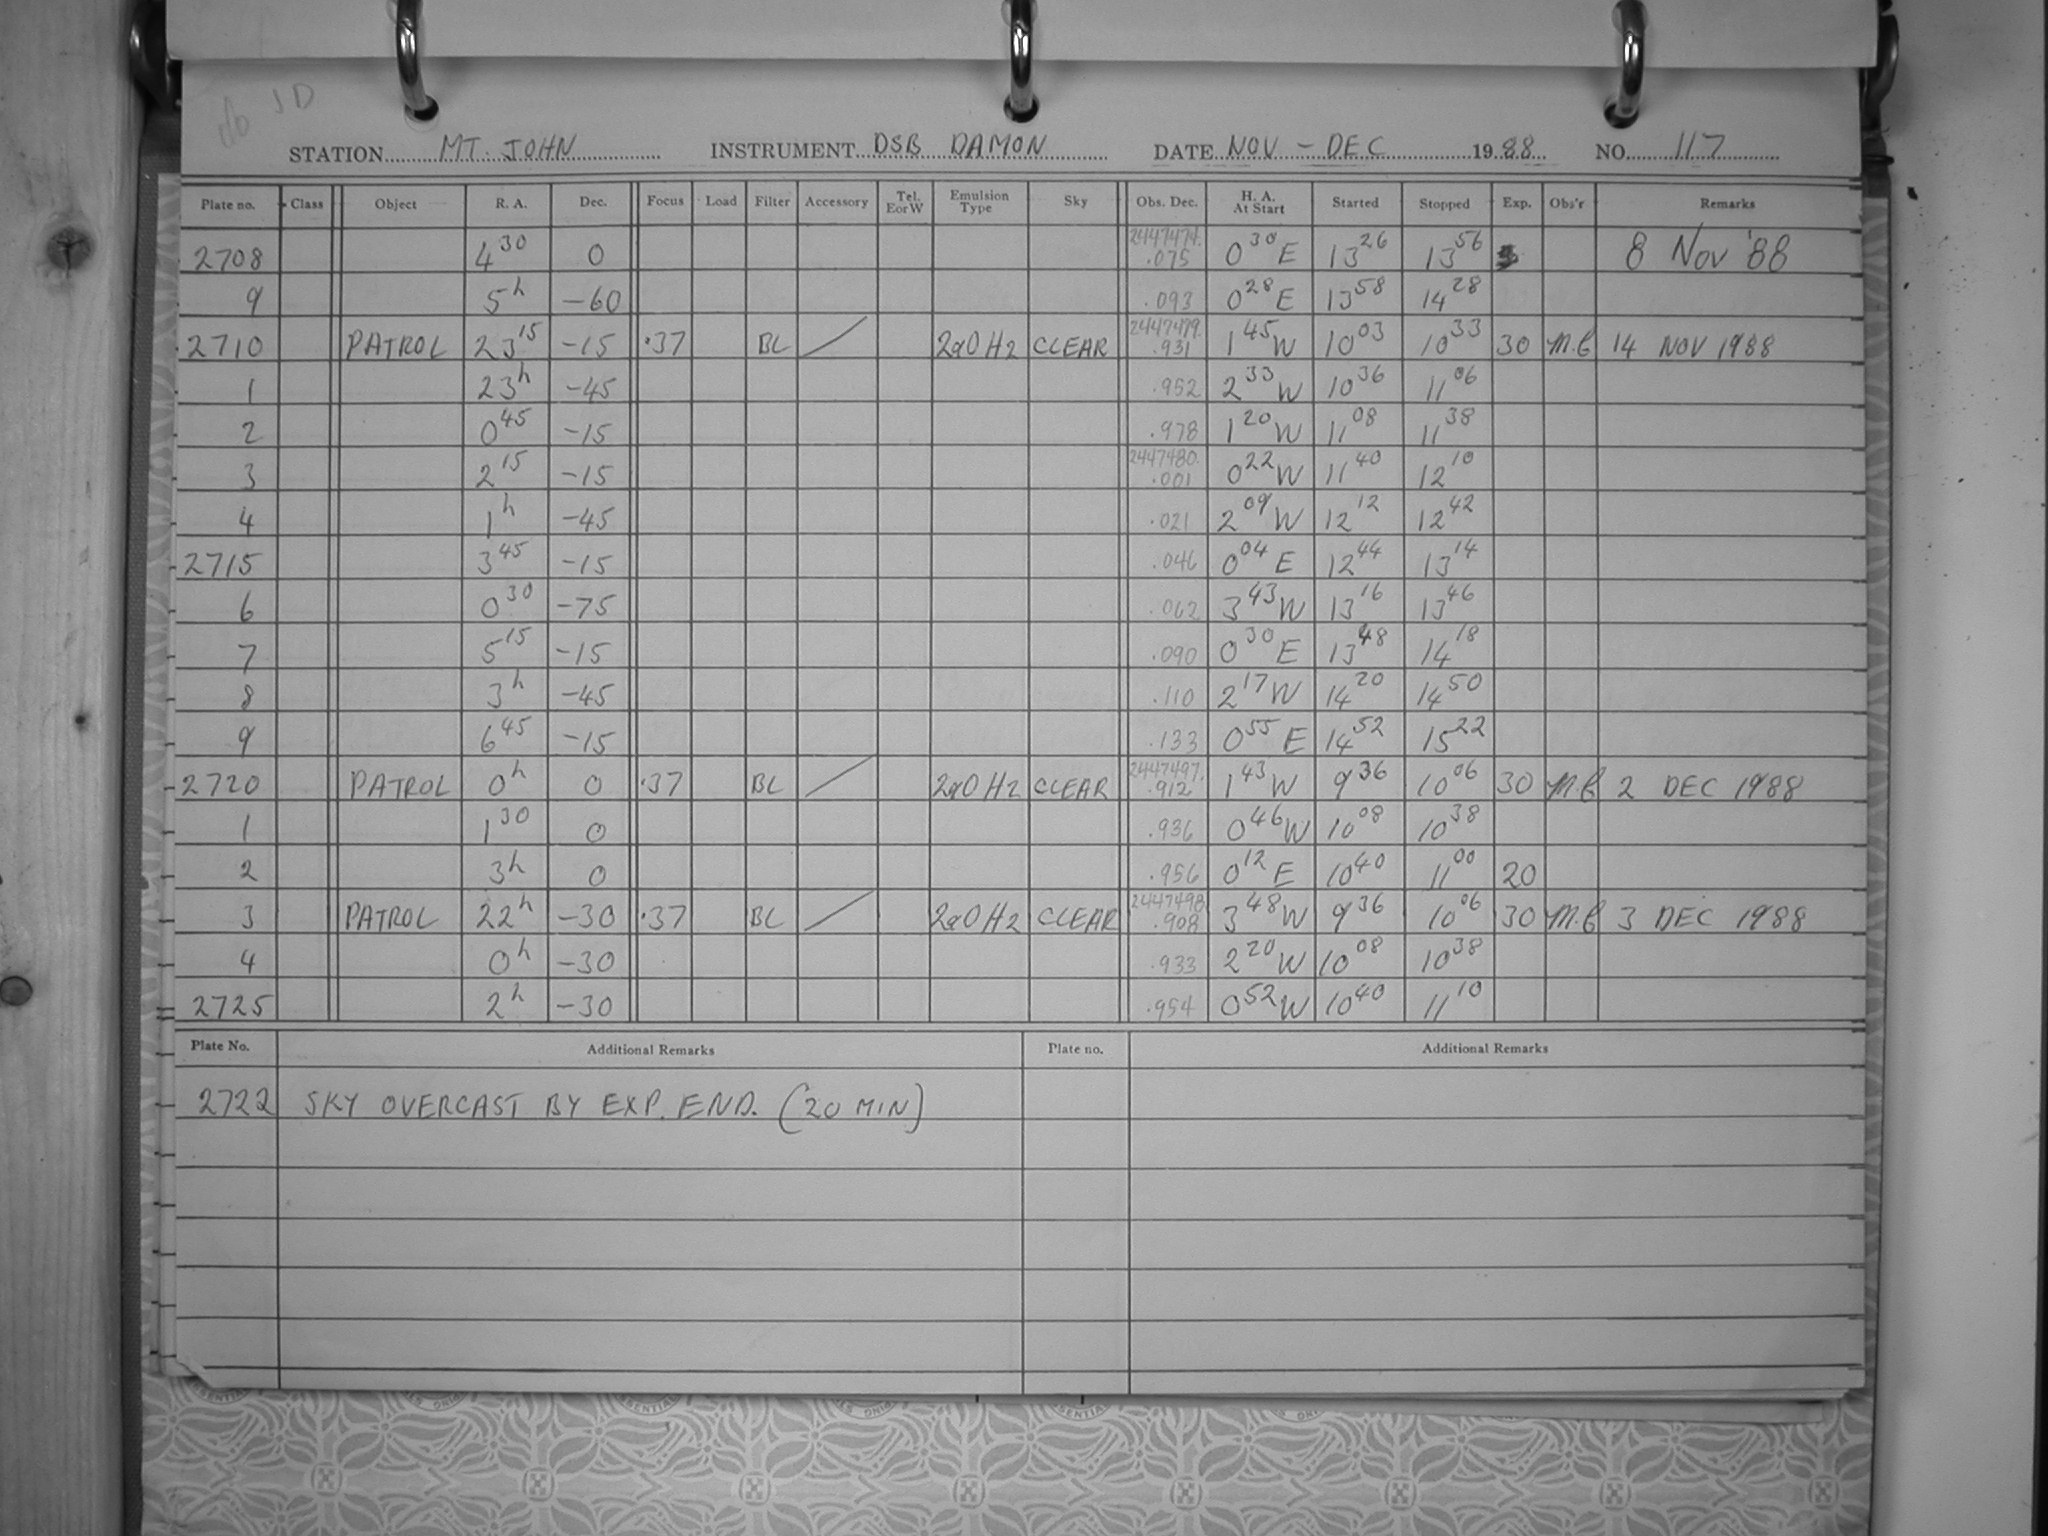 do JD
STATION MT. JOHN INSTRUMENT DSB DAMON DATE NOV - DEC 1988 NO. 117
Plate no. Class Object R. A. Dec. Focus Load Filter Accessory Tel. E or W Emulsion Type Sky Obs. Dec. H. A. At Start Started Stopped Exp. Obs'r Remarks
2708 4 30 0 2447474. .075 0 30 E 13 26 13 56 8 Nov '88
9 5h -60 .093 0 28 E 13 58 14 28
2710 PATROL 23 15 -15 .37 BL 2aO H2 CLEAR 2447479. .931 1 45 W 10 03 10 33 30 14 NOV 1988
1 23h -45 .952 2 33 W 10 36 11 06
2 0 45 -15 .978 1 20 W 11 08 11 38
3 2 15 -15 2447480. .001 0 22 W 11 40 12 10
4 1h -45 .021 2 09 W 12 12 12 42
2715 3 45 -15 .046 0 04 E 12 44 13 14
6 0 30 -75 .062 3 43 W 13 16 13 46
7 5 15 -15 .090 0 30 E 13 48 14 18
8 3h -45 .110 2 17 W 14 20 14 50
9 6 45 -15 .133 0 55 E 14 52 15 22
2720 PATROL 0h 0 .37 BL 2aO H2 CLEAR 2447497. .912 1 43 W 9 36 10 06 30 2 DEC 1988
1 1 30 0 .936 0 46 W 10 08 10 38
2 3h 0 .956 0 12 E 10 40 11 00 20
3 PATROL 22h -30 .37 BL 2aO H2 CLEAR 2447498. .908 3 48 W 9 36 10 06 30 3 DEC 1988
4 0h -30 .933 2 20 W 10 08 10 38
2725 2h -30 .954 0 52 W 10 40 11 10
Plate No. Additional Remarks Plate no. Additional Remarks
2722 SKY OVERCAST BY EXP. END. (20 MIN)